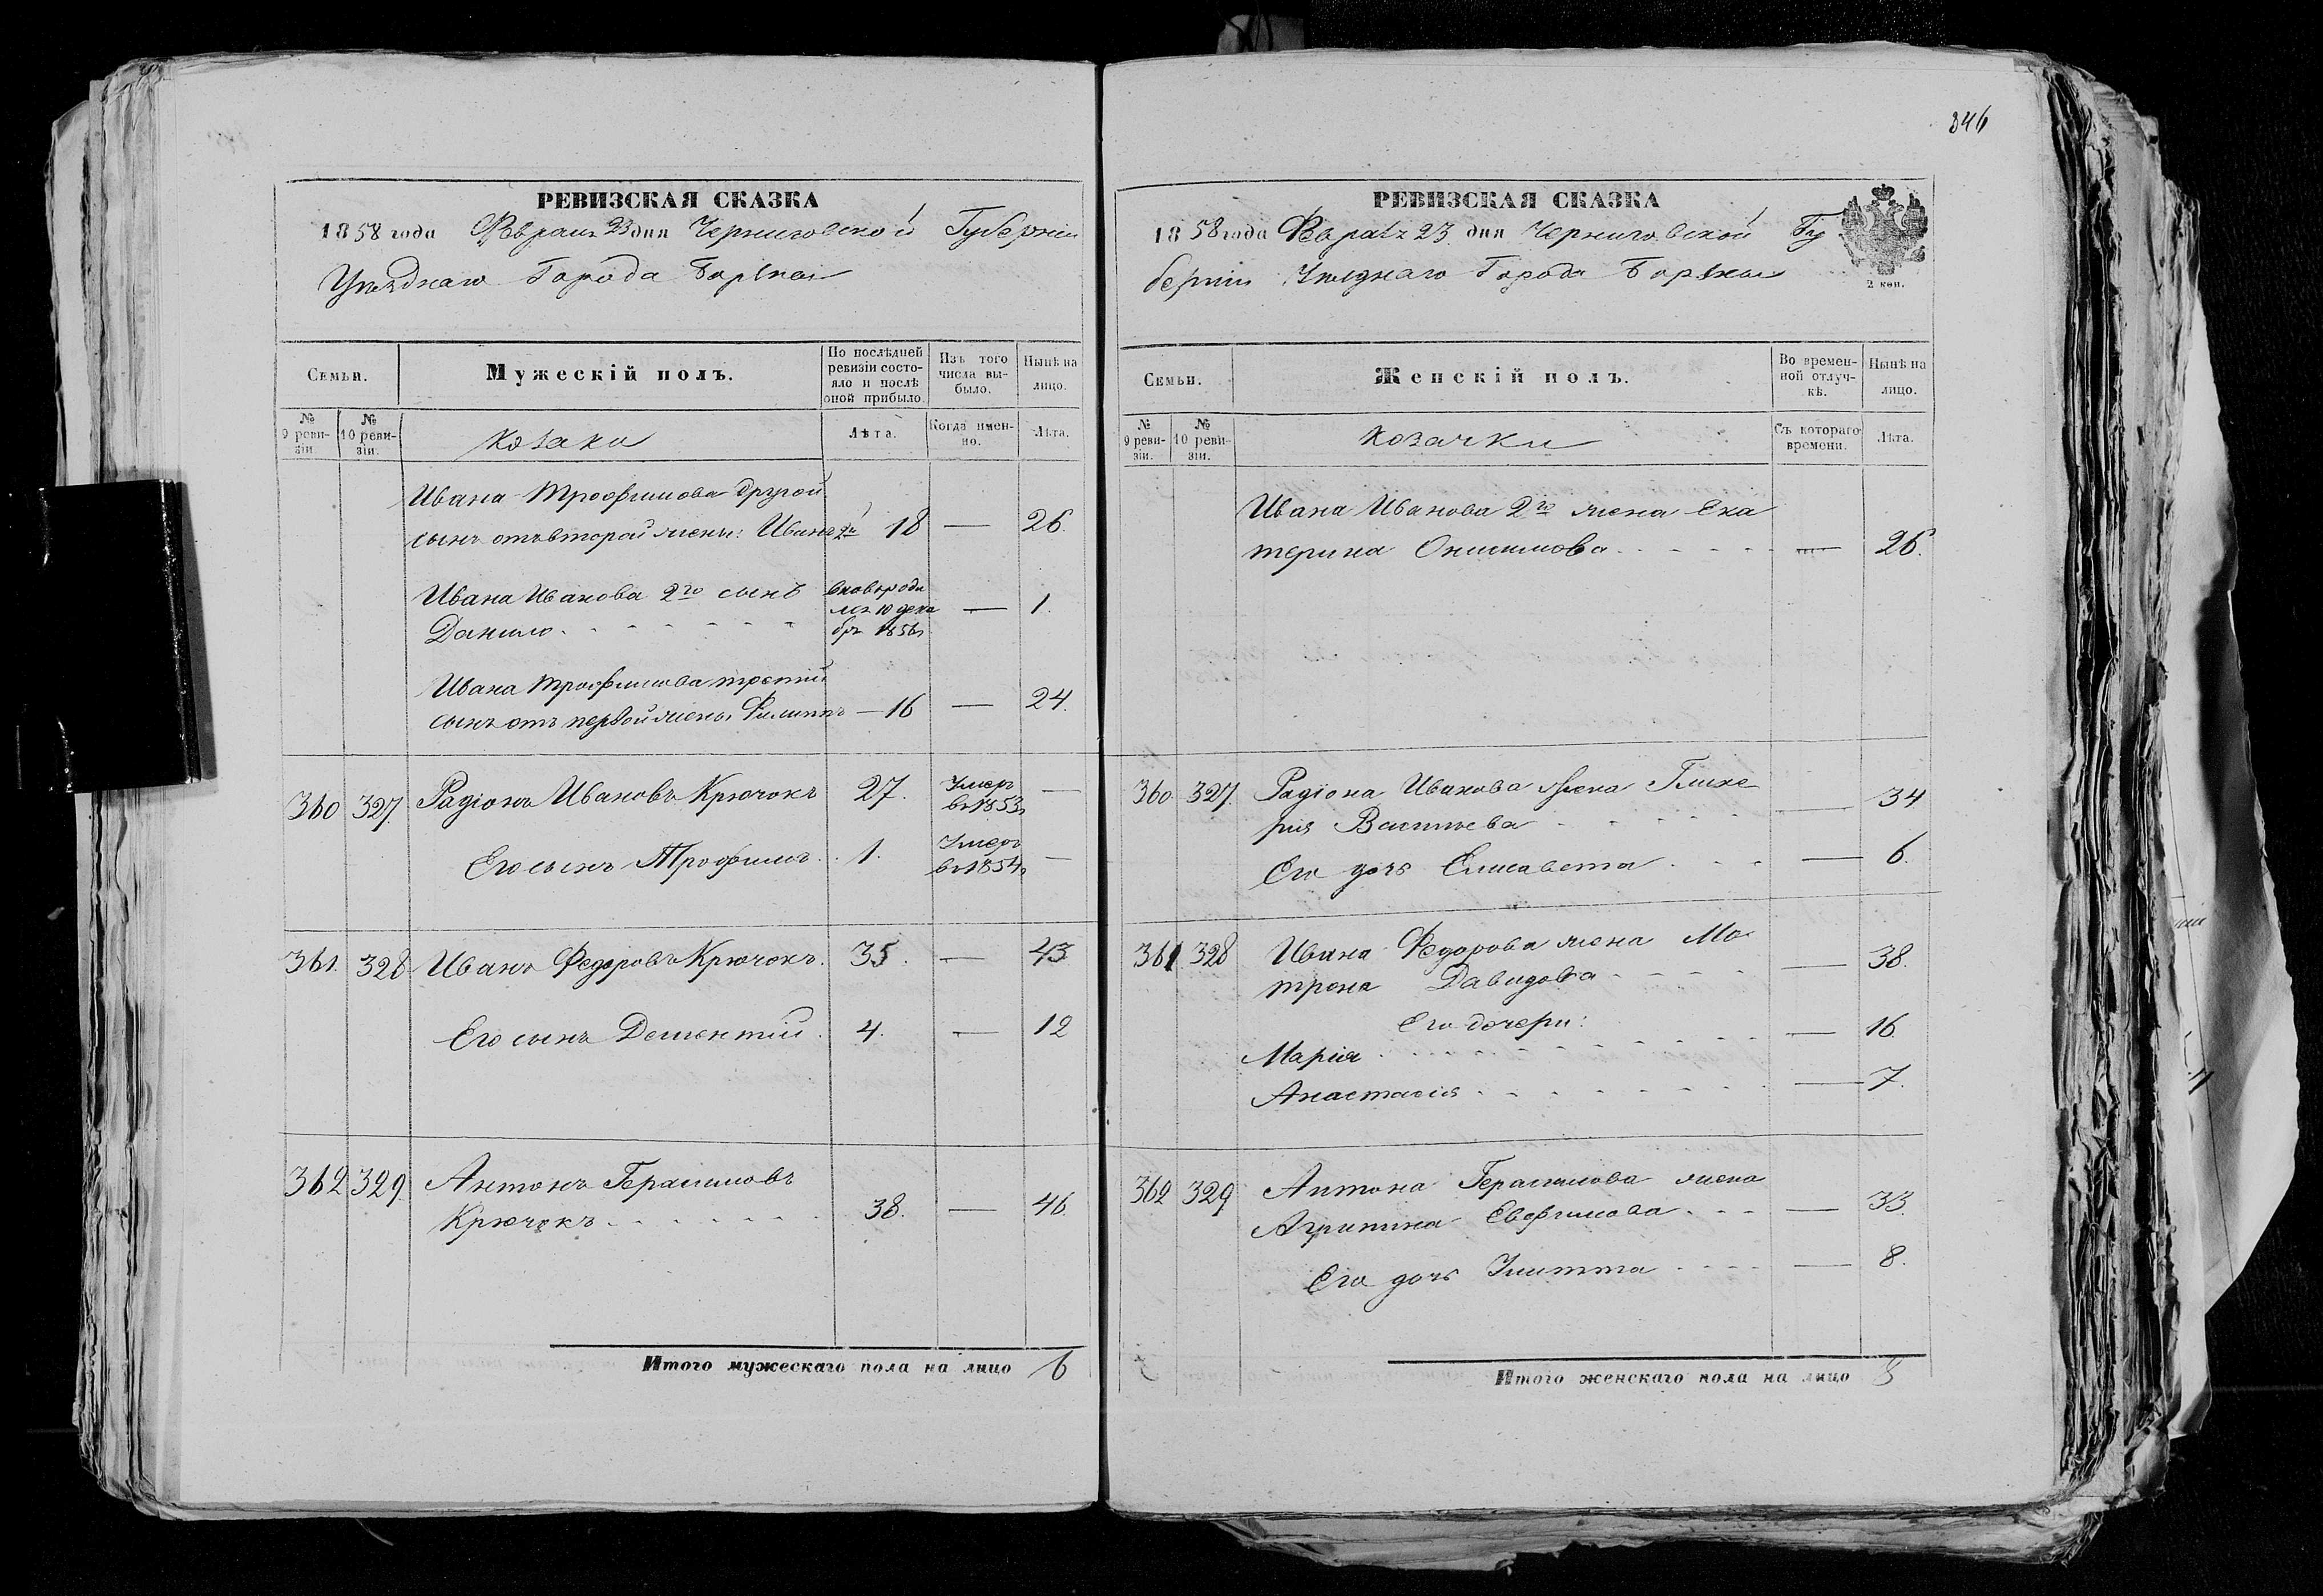 846
РЕВИЗСКАЯ СКАЗКА
1858 года Февраля 23 дня Черниговской Губерніи
Уѣзднаго Города Борзны
Семьи.
Мужескій полъ.
По послѣдней ревизіи состояло и послѣ оной прибыло.
Изъ того числа выбыло.
Нынѣ на лицо.
№ 9 ревизіи.
№ 10 ревизіи.
Козаки
Лѣта.
Когда именно.
Лѣта.
Ивана Трофимова другой
сынъ отъ второй жены: Иванъ 2й 18 — 26.
Ивана Иванова 2го сынъ
Данило вновь роди
лся 10 дека
бря 1856 — 1.
Ивана Трофимова третій
сынъ отъ первой жены Филиппъ — 16 — 24.
360 327 Радіонъ Ивановъ Крючокъ 27. Умеръ
в 1853 —
Его сынъ Трофимъ 1. Умеръ
в 1854 —
361. 328 Иванъ Федоровъ Крючокъ. 35. — 43
Его сынъ Дементій. 4. — 12
362 329 Антонъ Герасимовъ
Крючокъ 38. — 46.
Итого мужескаго пола на лицо 6
РЕВИЗСКАЯ СКАЗКА
1858 года Февраля 23 дня Черниговской Гу
берніи Уѣзднаго Города Борзны
2 коп.
Семьи.
Женскій полъ.
Во временной отлучкѣ.
Нынѣ на лицо.
№ 9 ревизіи.
№ 10 ревизіи.
Козачки
Съ котораго времени.
Лѣта.
Ивана Иванова 2го жена Ека
терина Онисимова — 26.
360. 327. Радіона Иванова жена Глике
рія Васильева — 34
Его дочь Елисавета — 6.
361 328 Ивана Федорова жена Мо
трона Давидова — 38.
Его дочери:
Марія — 16
Анастасія — 7.
362 329 Антона Герасимова жена
Агрипина Евфимова — 33
Его дочь Улитта — 8.
Итого женскаго пола на лицо 8